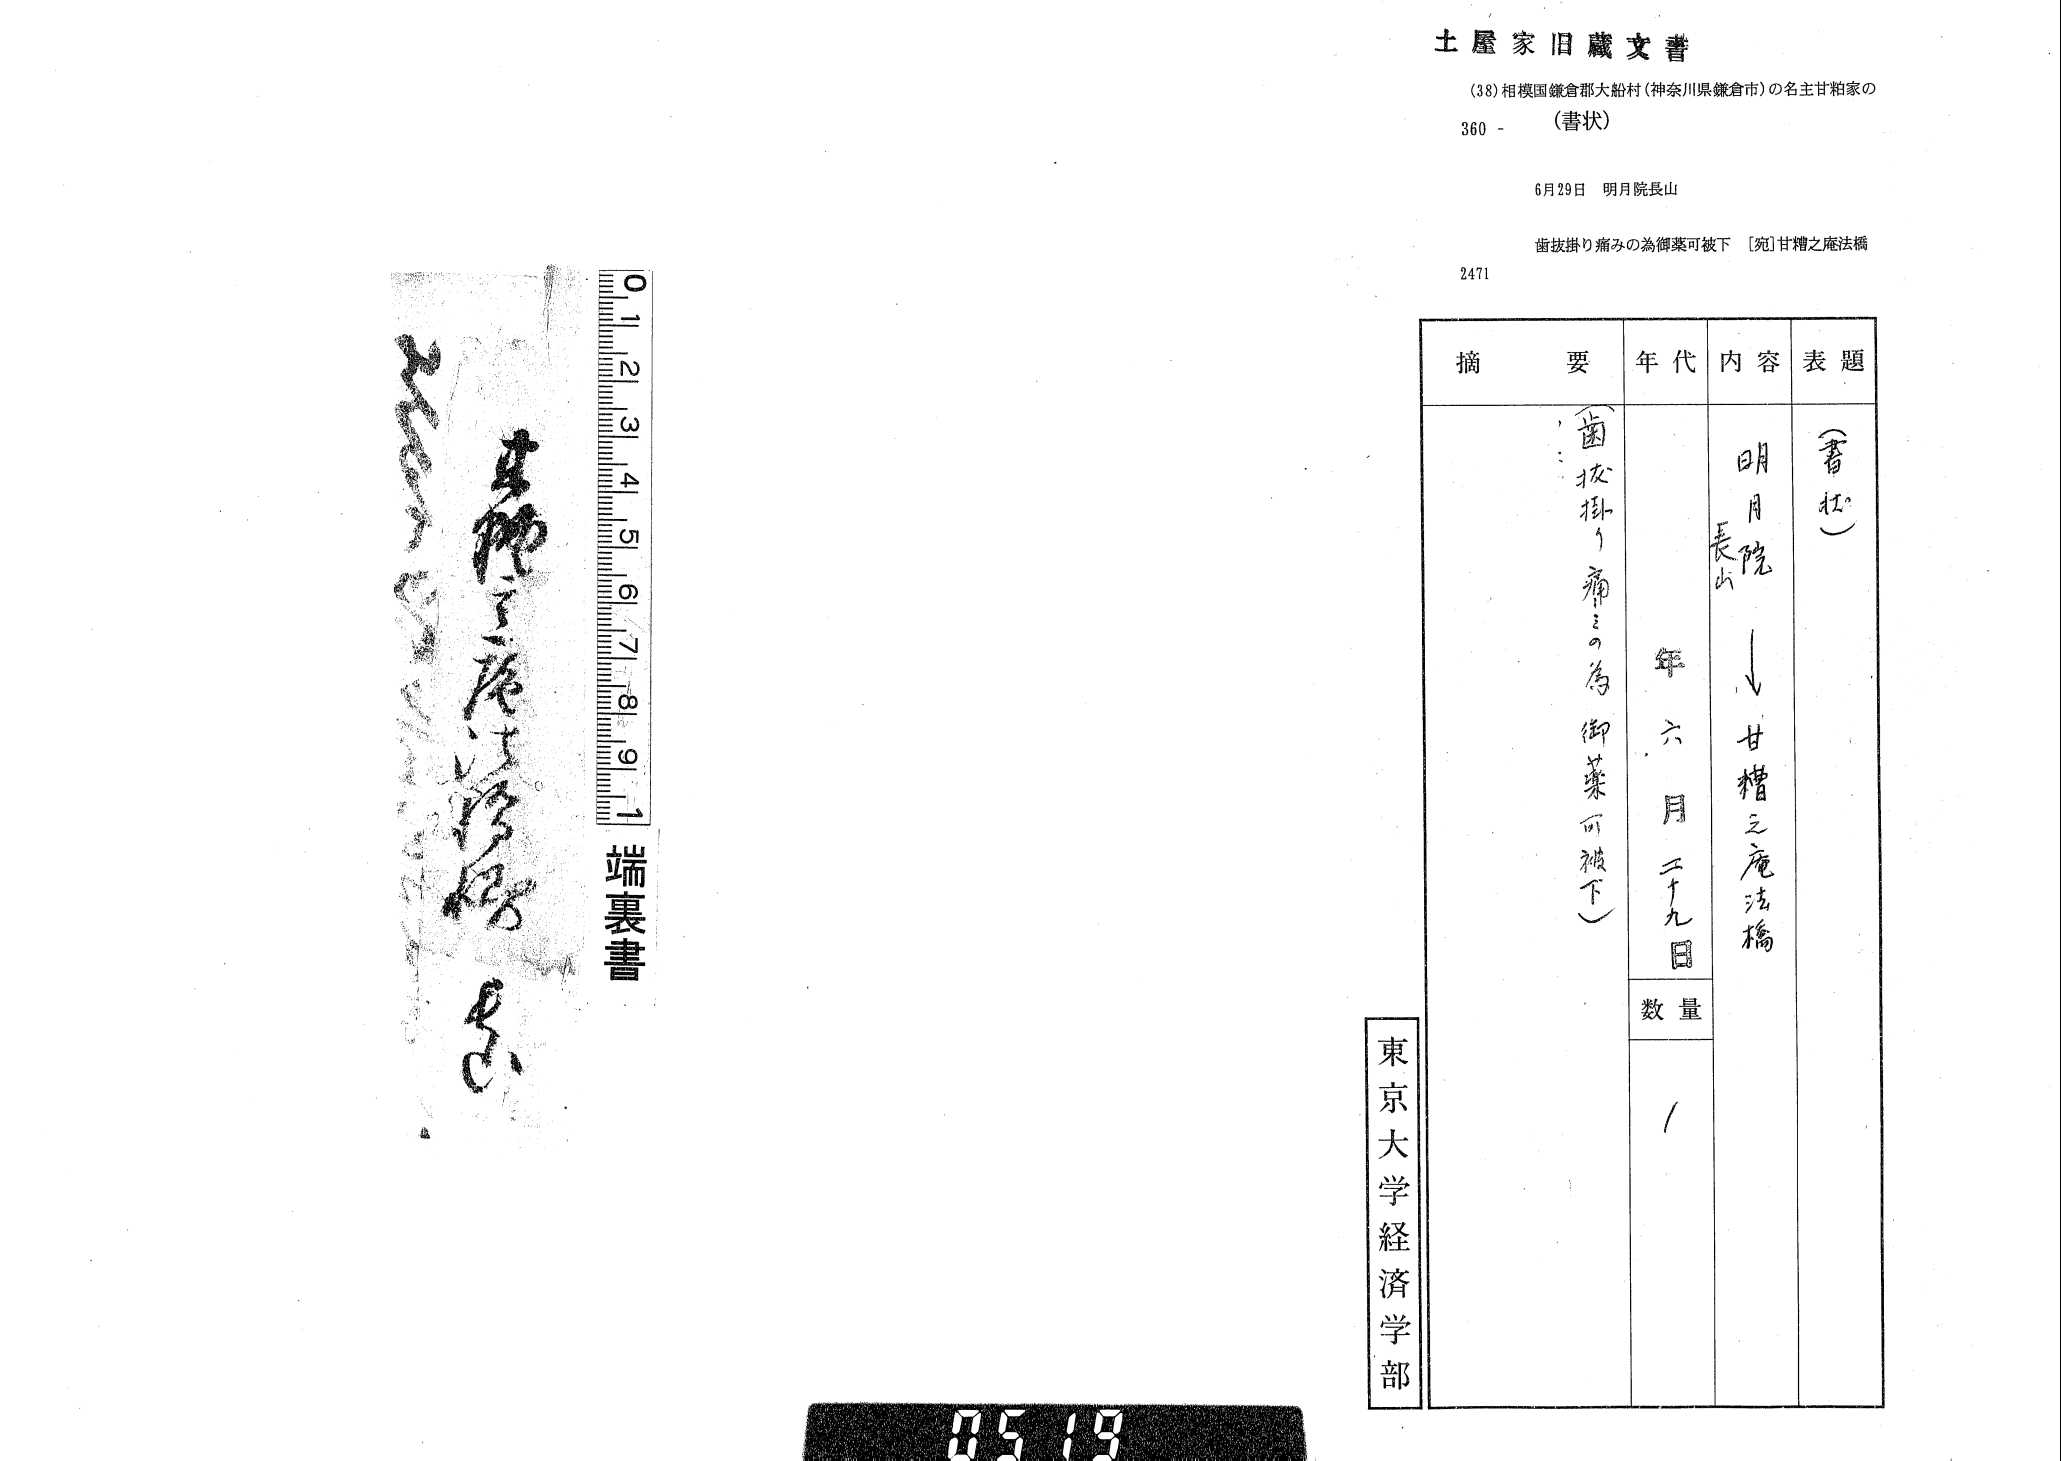 土屋家旧蔵文書
(38)相模国鎌倉郡大船村(神奈川県鎌倉市)の名主甘粕家の
360 - (書状)
6月29日 明月院長山
歯抜掛り痛みの為御薬可被下 [宛]甘糟之庵法橋
2471
表題
(書状)
内容
明月院
長山
↓甘糟之庵法橋
年代
年六月二十九日
数量
1
摘要
(歯抜掛り痛ミの為御薬可被下)
東京大学経済学部
0 1 2 3 4 5 6 7 8 9 1
端裏書
甘糟之庵法橋
長山
0519